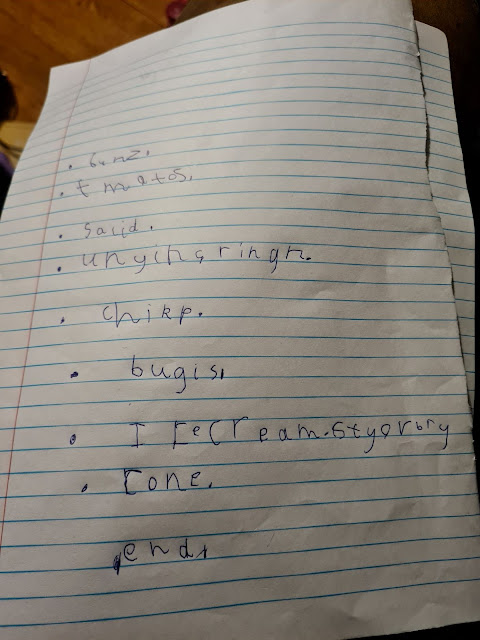 • bunz.
• tmatos.
• salid.
• unyinsringn.
• chikp.
• bugis,
• I cecream.styorbry
• cone.
end,